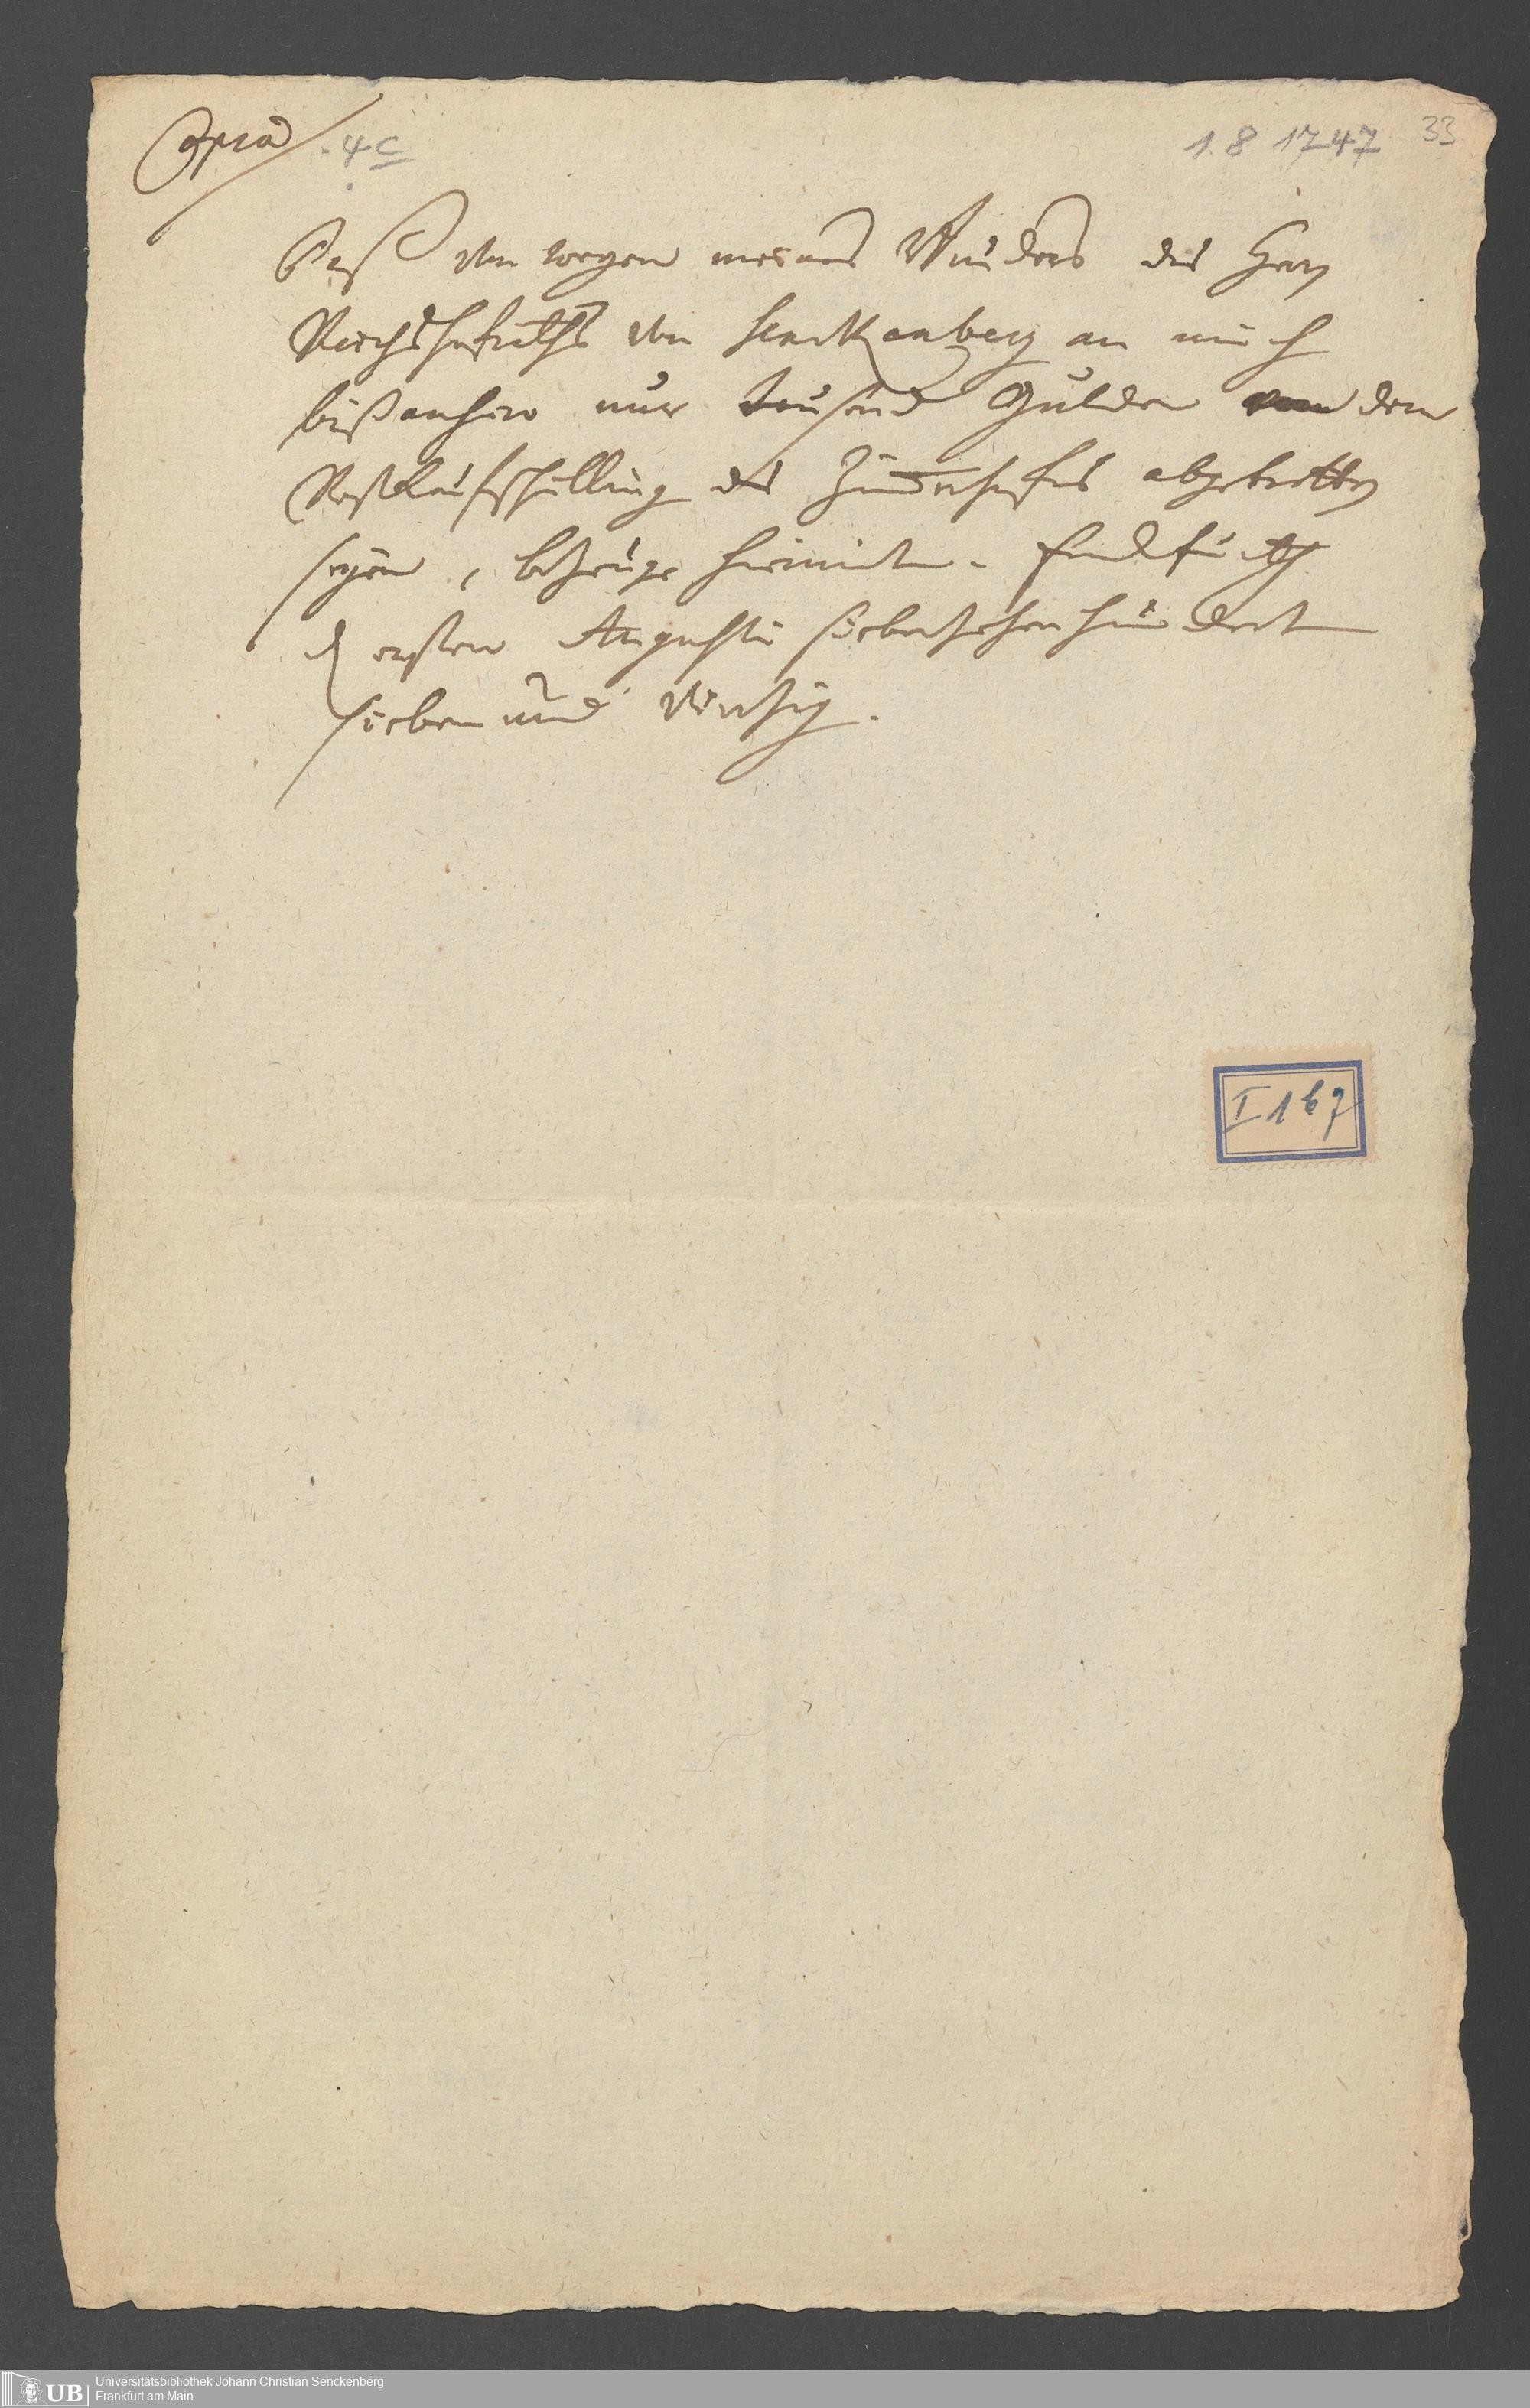 Copia 4c
1. 8 1747 33
Daß von wegen meines Bruders des Herrn
Reichshofraths von Senckenberg an mich
bißanhero nur tausend Gulden von dem
Kaufschilling des abgetretten
seyen, bezeuge hiermit. Franckfurth
d ersten Augusti siebenzehenhundert
sieben und Viertzig.
I 167
UB Universitätsbibliothek Johann Christian Senckenberg
Frankfurt am Main